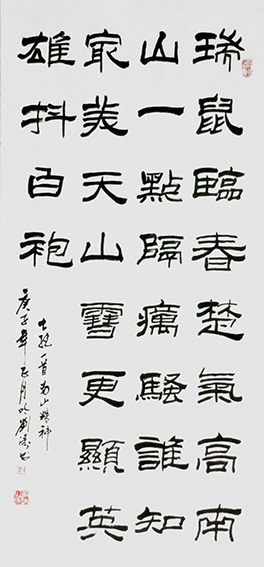 瑞鼠臨春楚氣高南
山一點隔癘騷誰知
最美天山雪更顯英
雄抖白袍
七絕一首南山精神
庚子年正月